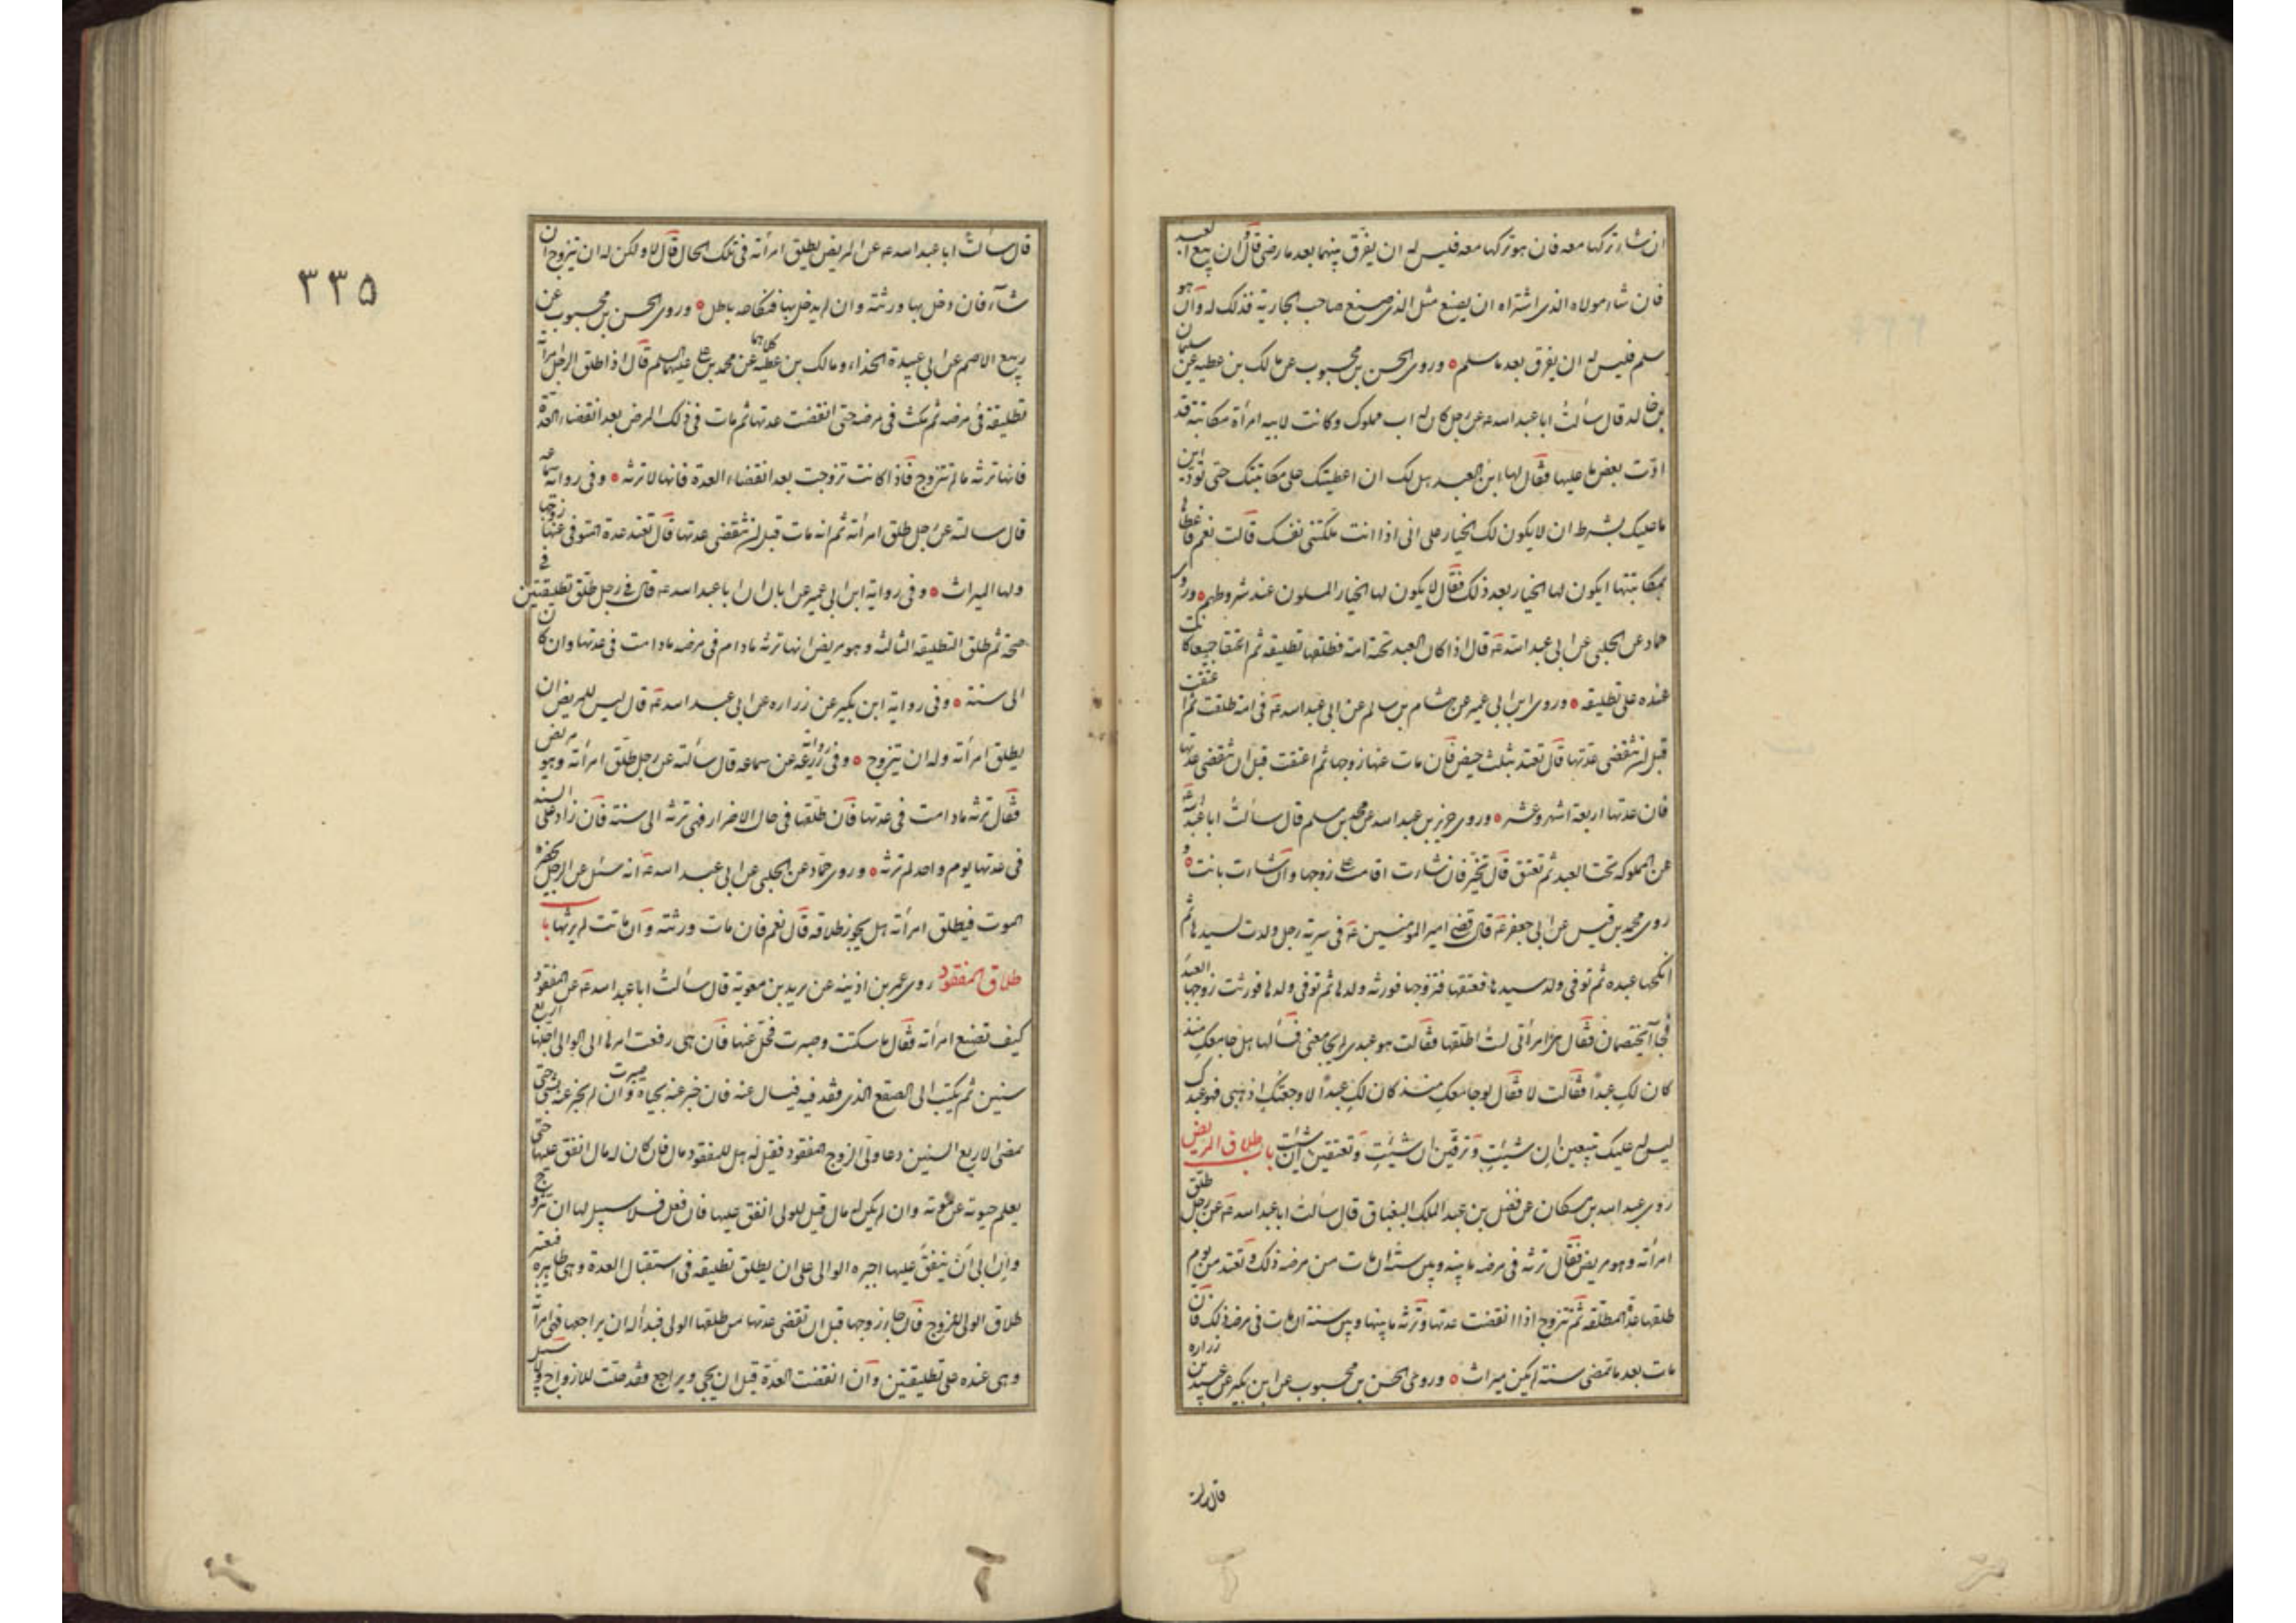 ان شاء تركها معه فان هو تركها معه فليس له ان يفرق بينهما بعد ما رضى قال و ان بيع العبد
فان شاء مولاه الذى اشتراه ان يصنع مثل الذى صنع صاحب الجارية فذلك له وان هو
سلم فليس له ان يفرق بعد ما سلم ٥ وروى الحسن بن محبوب عن مالك بن عطيه عن سليمان
بن خالد قال سألت ابا عبد الله عه عن رجل كان له اب مملوك وكانت لابيه امرأة مكاتبة قد
ادّت بعض ما عليها فقال لها ابن العبد هل لك ان اعطيتك على مكاتبتك حتى تؤدين
ما عليك بشرط ان لا يكون لك الخيار على ابى اذا انت ملكتى نفسك قالت نعم فاعطاها
بمكاتبتها ايكون لها الخيار بعد ذلك فقال لا يكون لها الخيار المسلمون عند شروطهم ٥ وروى
حماد عن الحلبى عن ابى عبد الله عه قال اذا كان العبد تحته امة فطلقها تطليقه ثم اعتقا جميعا كانت
عنده على تطليقه ٥ وروى ابن ابى عمير عن هشام بن سالم عن ابى عبد الله عه فى امة طلقت ثم اعتقت
قبل ان تنقضى عدتها قال تعتد بثلث حيض فان مات عنها زوجها ثم اعتقت قبل ان تنقضى عدتها
فان عدتها اربعة اشهر وعشر ٥ وروى حريز بن عبد الله عن محمد بن مسلم قال سألت ابا عبد الله عه
عن المملوكه تحت العبد ثم تعتق قال تخيّر فان شاءت اقامت على زوجها وان شاءت بانت ٥ و
روى محمد بن قيس عن ابى جعفر عه قال قضى امير المومنين عه فى سرية رجل ولدت لسيدها ثم
انكحها عبده ثم توفى ولد سيدها فعتقها فتزوجها فورثه ولدها ثم توفى ولدها فورثت زوجها العبد
فجاآ يختصمان فقال هى امرأتى لست اطلقها فقالت هو عبدى لم يجامعنى فسألها هل جامعك منذ
كان لكِ عبدًا فقالت لا فقال لو جامعكِ منذ كان لكِ عبدًا لاوجعتكِ اذهبى فهو عبدك
ليس له عليك تبيعين ان شئتِ وترقّين ان شئتِ وتعتقين ان شئت باب طلاق المريض
روى عبد الله بن مسكان عن فضل بن عبد الملك البقباق قال سألت ابا عبد الله عه عن رجل طلق
امرأته وهو مريض فقال ترثه فى مرضه ما بينه وبين سنة ان مات من مرضه ذلك وتعتد من يوم
طلقها عدة المطلقه ثم تتزوج اذا انقضت عدتها وترثه ما بينها وبين سنة ان مات فى مرضه ذلك فان
مات بعد ما تمضى سنة لم يكن ميراث ٥ وروى الحسن بن محبوب عن ابن بكير عن عبيد بن زراره
قال سألت
٣٣٥
قال سألتُ ابا عبد الله عه عن المريض يطلق امرأته فى تلك الحال قال لا ولكن له ان يتزوج ان
شاء فان دخل بها ورثته وان لم يدخل بها فنكاحه باطل ٥ وروى الحسن بن محبوب عن
ربيع الاصم عن ابى عبيدة الحذاء ومالك بن عطيه كلاهما عن محمد بن على عليهما السلم قال اذا طلق الرجل امرأته
تطليقة فى مرضه ثم مكث فى مرضه حتى انقضت عدتها ثم مات فى ذلك المرض بعد انقضاء العدة
فانها ترثه ما لم تتزوج فاذا كانت تزوجت بعد انقضاء العدة فانها لا ترثه ٥ وفى رواية سماعه
قال سالته عن رجل طلق امرأته ثم انه مات قبل ان تنقضى عدتها قال تعتد عدة المتوفى عنها زوجها
ولها الميراث ٥ وفى رواية ابن ابى عمير عن ابان ان ابا عبد الله عه قال فى رجل طلق تطليقتين فى
صحة ثم طلق التطليقه الثالثه وهو مريض انها ترثه مادام فى مرضه مادامت فى عدتها وان كان
الى سنة ٥ وفى رواية ابن بكير عن زراره عن ابى عبد الله عه قال ليس للمريض ان
يطلق امرأته وله ان يتزوج ٥ وفى رواية زرعه عن سماعه قال سألته عن رجل طلق امرأته وهو مريض
فقال ترثه مادامت فى عدتها فان طلقها فى حال الاضرار فهى ترثه الى سنة فان زاد على السنه
فى عدتها يوم واحد لم ترثه ٥ وروى حماد عن الحلبى عن ابى عبد الله عه انه سئل عن الرجل يحضره
الموت فيطلق امرأته هل يجوز طلاقه قال نعم فان مات ورثته وان ماتت لم يرثها باب
طلاق المفقود روى عمر بن اذينه عن بريد بن معوية قال سألتُ ابا عبد الله عه عن المفقود
كيف تصنع امرأته فقال ما سكتت وصبرت فخلّ عنها فان هى رفعت امرها الى الوالى اجلها اربع
سنين ثم يكتب الى الصقع الذى فقد فيه فيسال عنه فان خبر عنه بحياة صبرت وان لم يخبر عنه بشى حتى
تمضى الاربع السنين دعا ولى الزوج المفقود فقيل له هل للمفقود مال فان كان له مال انفق عليها حتى
يعلم حيوته من موته وان لم يكن له مال قيل للولى انفق عليها فان فعل فلا سبيل لها ان تتزوج
وان ابى ان ينفق عليها اجبره الوالى على ان يطلق تطليقه فى استقبال العدة وهى طاهره فيصير
طلاق الولى طلاق الزوج فان جاء زوجها قبل ان تنقضى عدتها من طلقها الولى فبدأ له ان يراجعها فهى امرأته
وهى عنده على تطليقتين وان انقضت العدة قبل ان يجى ويراجع فقد حلت للازواج ولا سبيل